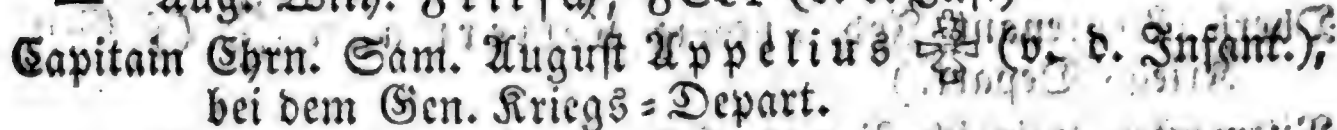 Capitain Chrn. Sam. August Appelius ✠ (v. d. Infant.),
bei dem Gen. Kriegs=Depart.